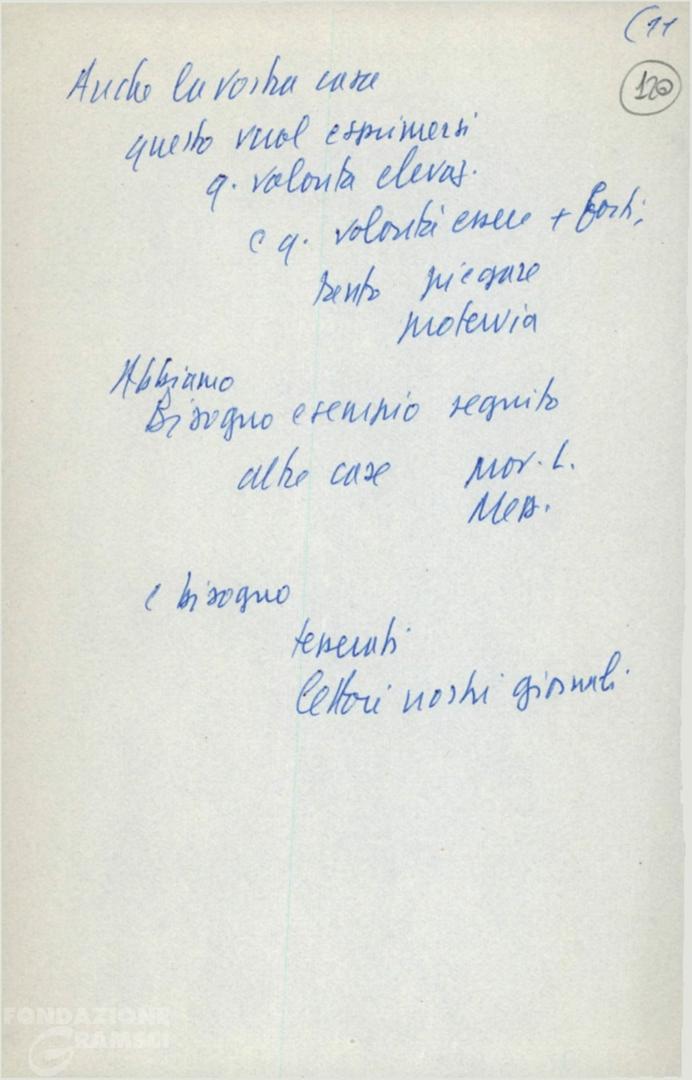 (11
120
Anche la vostra casa
questo vuol esprimersi
q. volontà elevaz.
e q. volontà essere + forti;
tento piegare
protervia
Abbiamo
Bisogno esempio seguito
altre case Mov. L.
Mess.
e bisogno
tesserati
lettori nostri giornali.
FONDAZIONE
GRAMSCI